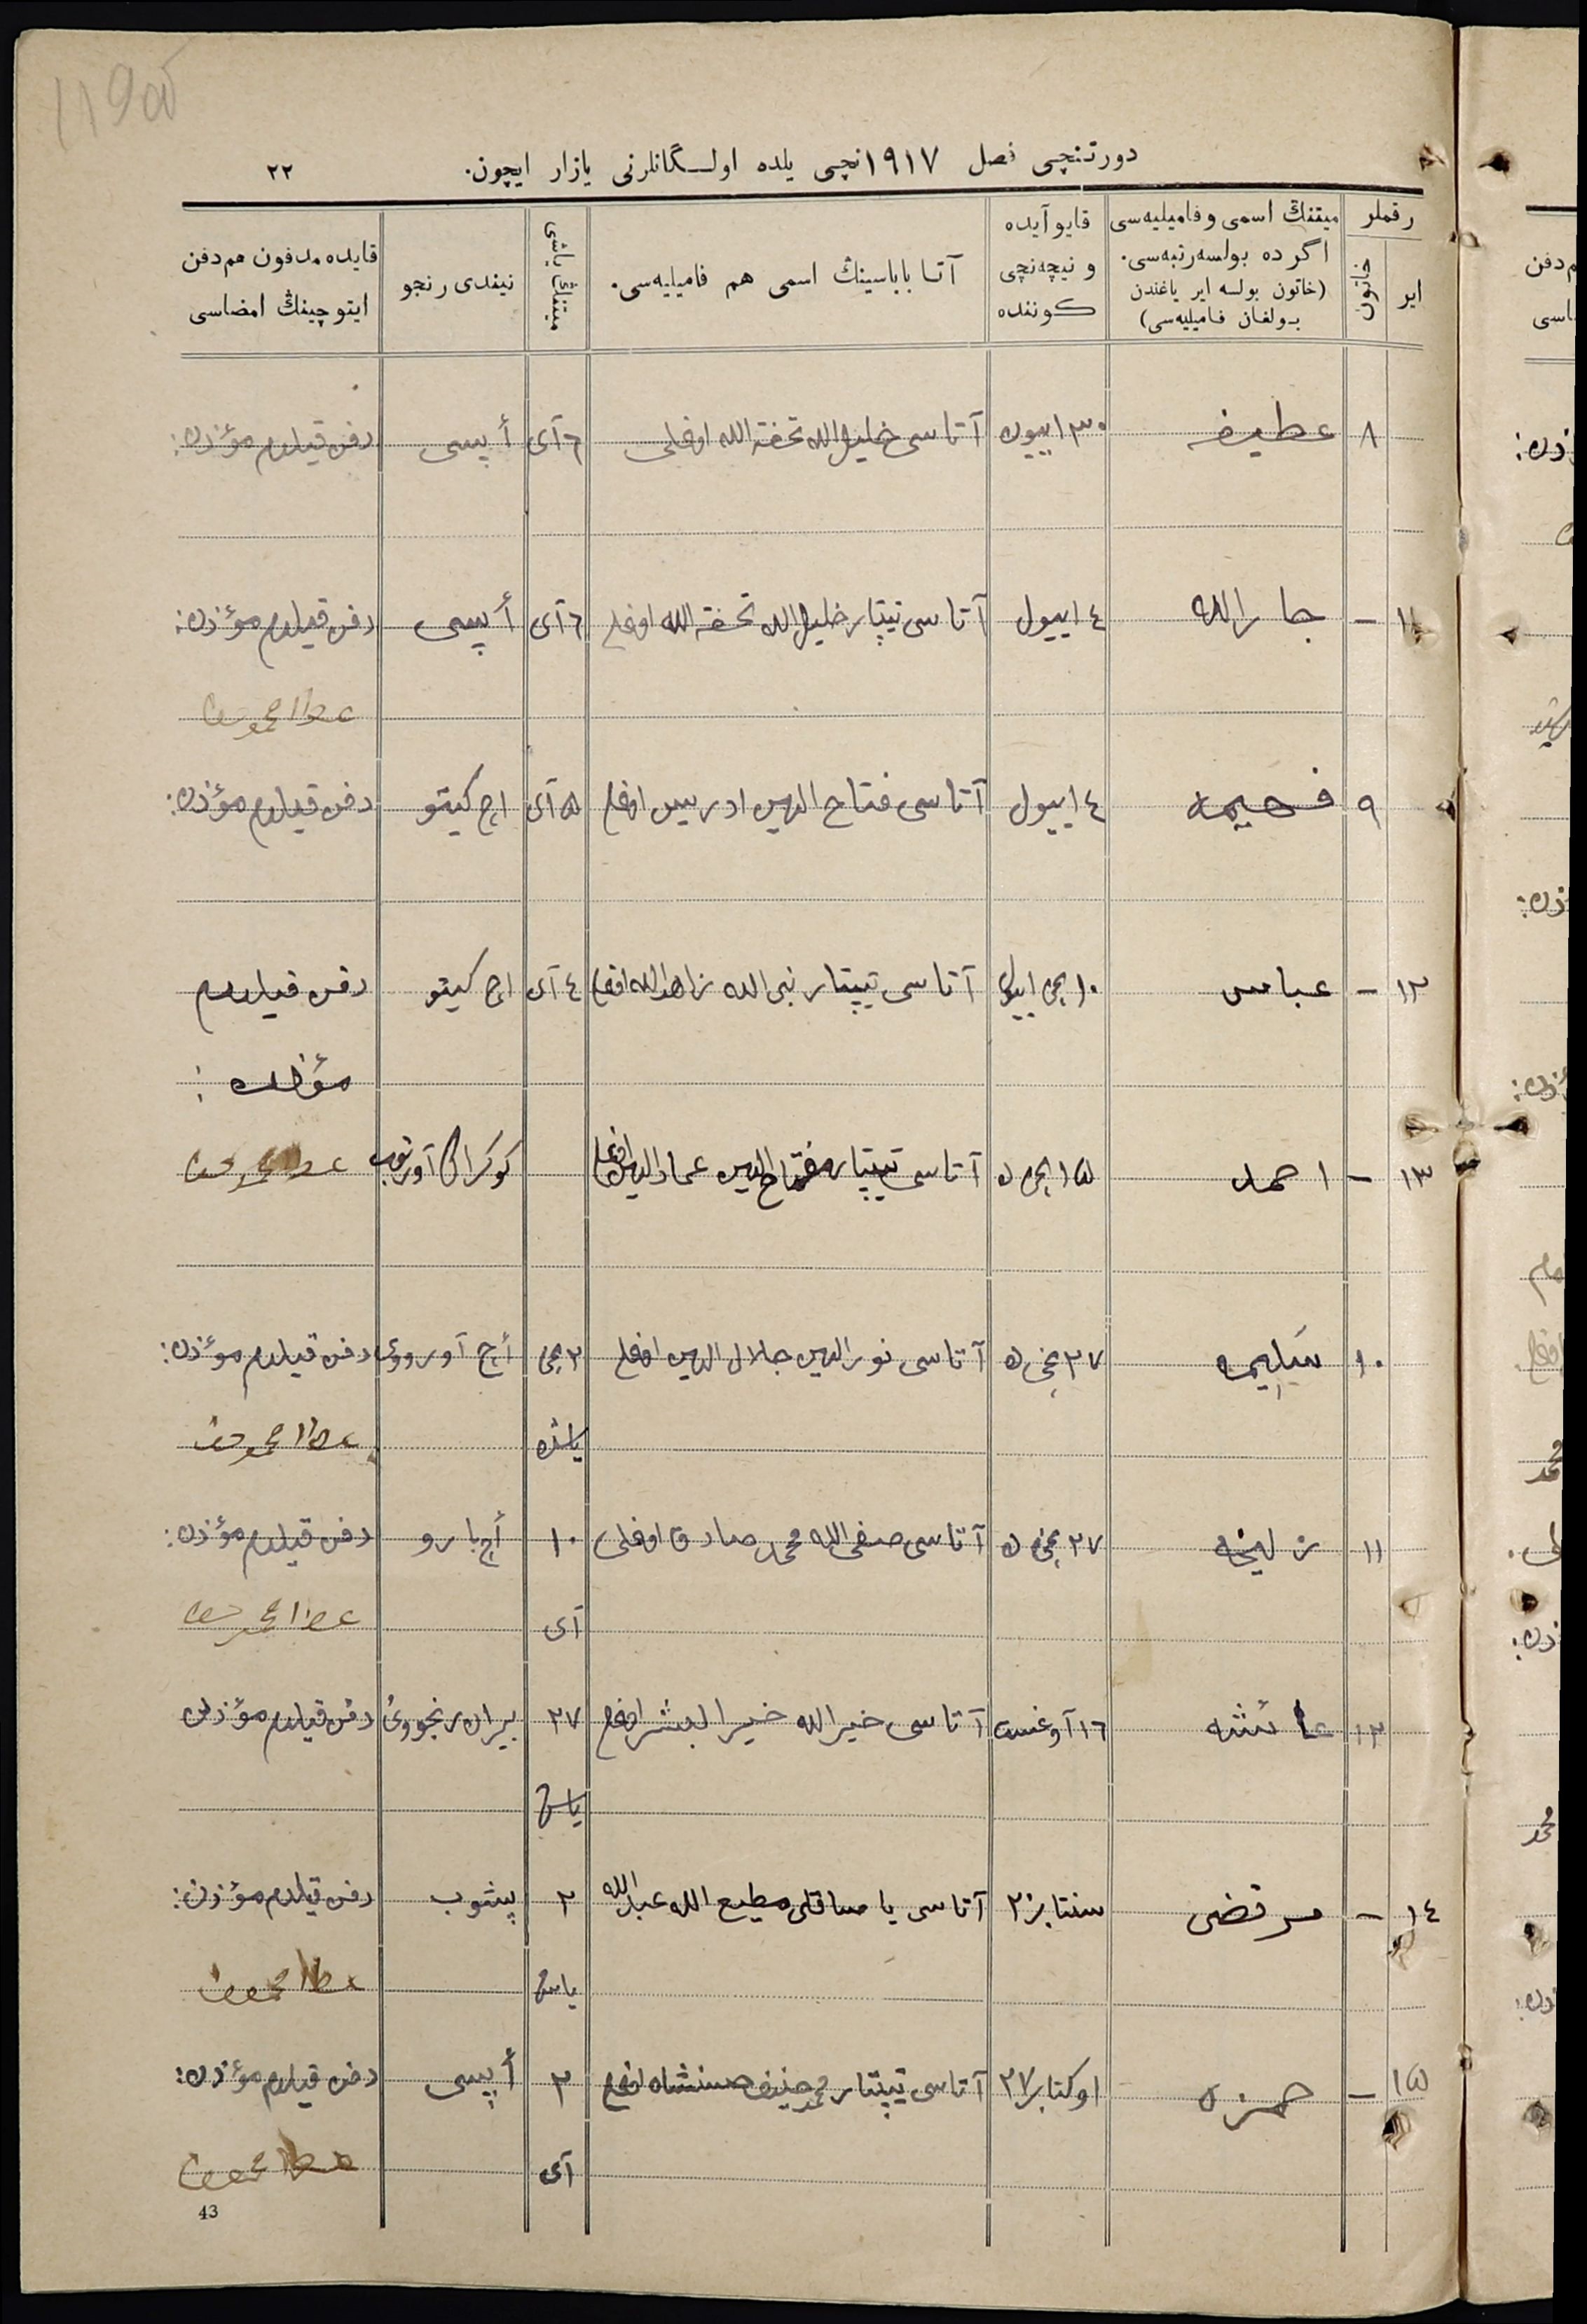 دورتنچی فصل ١٩١٧نچی یلده اولـگانلرنی یازار ایچون. ٢٢
رقملر
ایر
خاتون
میتنڭ اسمی و فامیلیه‌سی
اگر ده بولسه رتبه‌سی.
(خاتون بولسه ایر یاغندن
بولغان فامیلیه‌سی)
قایو آیده
و نیچه‌نچی
کوننده
آتا باباسینڭ اسمی هم فامیلیه‌سی.
میتنڭ یاشی
نیندی رنجو
قایده مدفون هم دفن
ایتوچینڭ امضاسی
٨ عطیفه ٣٠ اییون آتاسی خلیل الله تحفة الله اوغلی ٦ آی أپیسی دفن قیلدم مؤذن:
١١ – جارالله ٤ اییول آتاسی تیپتار خلیل الله تحفة الله اوغلی ٦ آی أپیسی دفن قیلدم مؤذن:
٩ فهیمه ٤ اییول آتاسی فتاح الدین ادریس اوغلی ٥ آی اچ کیتو دفن قیلدم مؤذن:
١٢ – عباس ١٠ نچی اییول آتاسی تیپتار نبی الله زاهدالله اوغلی ٤ آی اچ کیتو دفن قیلدم
مؤذن:
١٣ – احمد ١٥ نچی ده آتاسی تیپتار مفتاح الدین عماد الدین اوغلی کوکراک آورتوب
١٠ سَلِیمه ٢٧ نچی ده آتاسی نورالدین جلال الدین اوغلی ٢ نچی أچ آورووی دفن قیلدم مؤذن:
یاشده
١١ زلیخه ٢٧ نچی ده آتاسی صفی الله محمد صادق اوغلی ١٠ أچ بارو دفن قیلدم مؤذن:
آی
١٢ عائشه ١٦ آوغست آتاسی خیرالله خیرالبشر اوغلی ٢٧ بیران رنجووی دفن قیلدم مؤذن
یاش
١٤ – مرتضی سنتابر ٢ آتاسی یاصاقلی مطیع الله عبدالله ٢ پیشوب دفن قیلدم مؤذن:
یاش
١٥ – حمزه اوکتابر ٢٧ آتاسی تیپتار محمد حنیف حسنشاه اوغلی ٢ أپیسی دفن قیلدم مؤذن:
آی
43